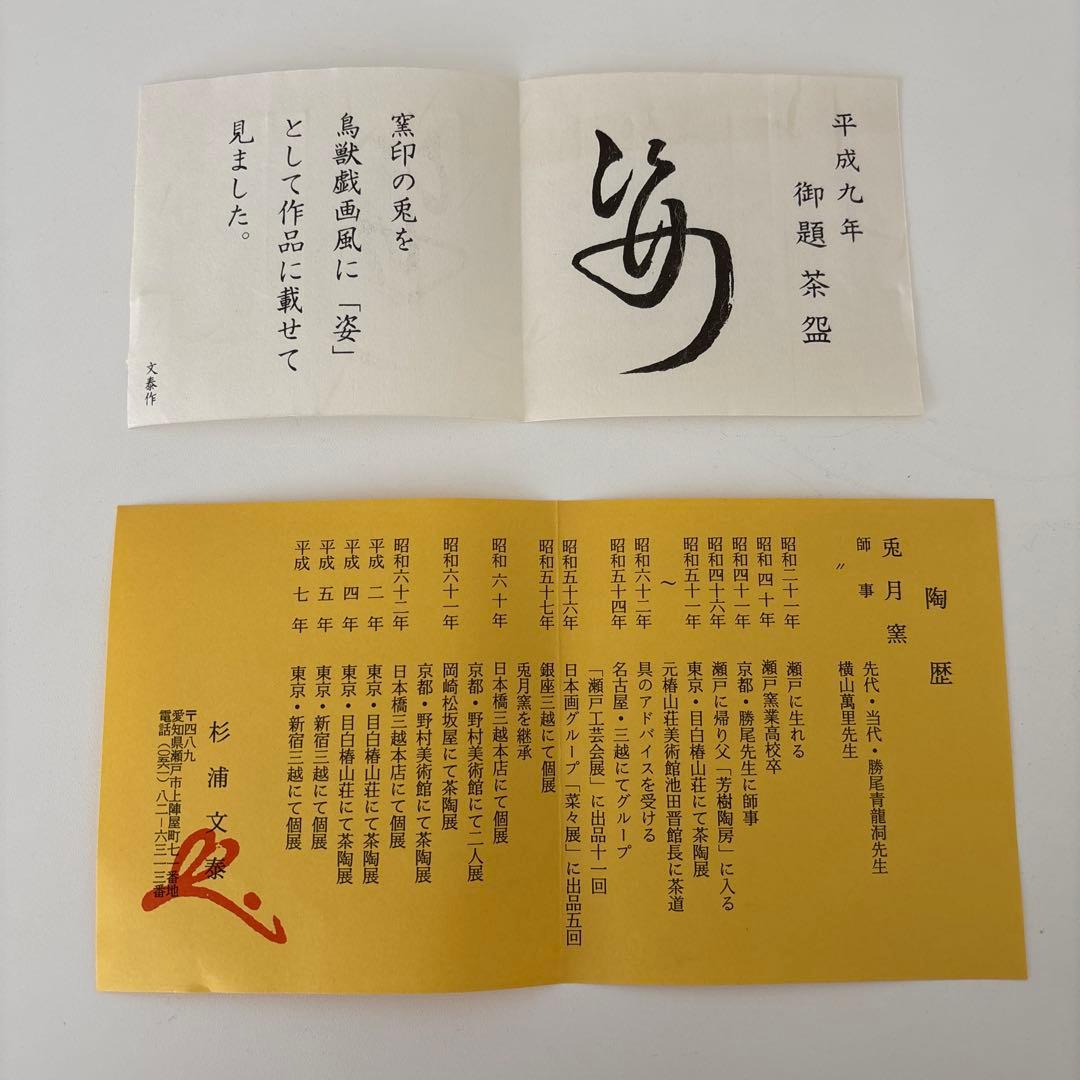 平成九年
御題茶盌
姿
窯印の兎を
鳥獣戯画風に「姿」
として作品に載せて
見ました。
文泰作
陶歴
兎月窯
師事 先代・当代・勝尾青龍洞先生
〃 横山萬里先生
昭和二十一年 瀬戸に生れる
昭和四十年 瀬戸窯業高校卒
昭和四十一年 京都・勝尾先生に師事
昭和四十六年 瀬戸に帰り父「芳樹陶房」に入る
昭和五十一年 東京・目白椿山荘にて茶陶展
～ 元椿山荘美術館池田晋館長に茶道
昭和六十二年 具のアドバイスを受ける
昭和五十四年 名古屋・三越にてグループ
「瀬戸工芸会展」に出品十一回
昭和五十六年 日本画グループ「菜々展」に出品五回
昭和五十七年 銀座三越にて個展
兎月窯を継承
昭和六十年 日本橋三越本店にて個展
京都・野村美術館にて二人展
昭和六十一年 岡崎松坂屋にて茶陶展
京都・野村美術館にて茶陶展
昭和六十二年 日本橋三越本店にて個展
平成二年 東京・目白椿山荘にて茶陶展
平成四年 東京・目白椿山荘にて茶陶展
平成五年 東京・新宿三越にて個展
平成七年 東京・新宿三越にて個展
杉浦文泰
〒四八九
愛知県瀬戸市上陣屋町七一番地
電話（〇五六一）八二－六三一三番